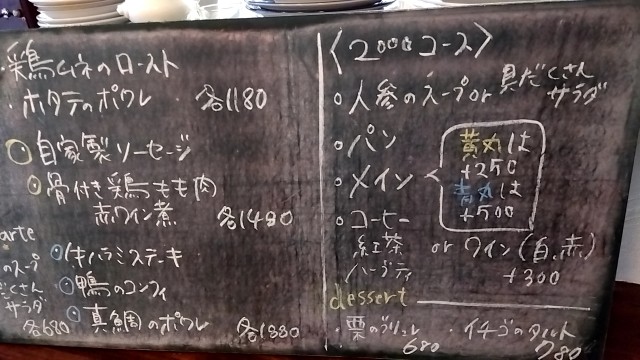 ・鶏ムネのロースト
・ホタテのポワレ 各1180
○自家製ソーセージ
○骨付き鶏もも肉
赤ワイン煮 各1480
arte
のスープ
だくさん
サラダ
各680
○牛ハラミステーキ
○鴨のコンフィ
○真鯛のポワレ 各1880
〈2000コース〉
○人参のスープor具だくさん
サラダ
○パン
○メイン
黄丸は
+250
青丸は
+500
○コーヒー
紅茶
ハーブティ
or ワイン(白、赤)
+300
dessert
・栗のブリュレ
680
・イチゴのタルト
780